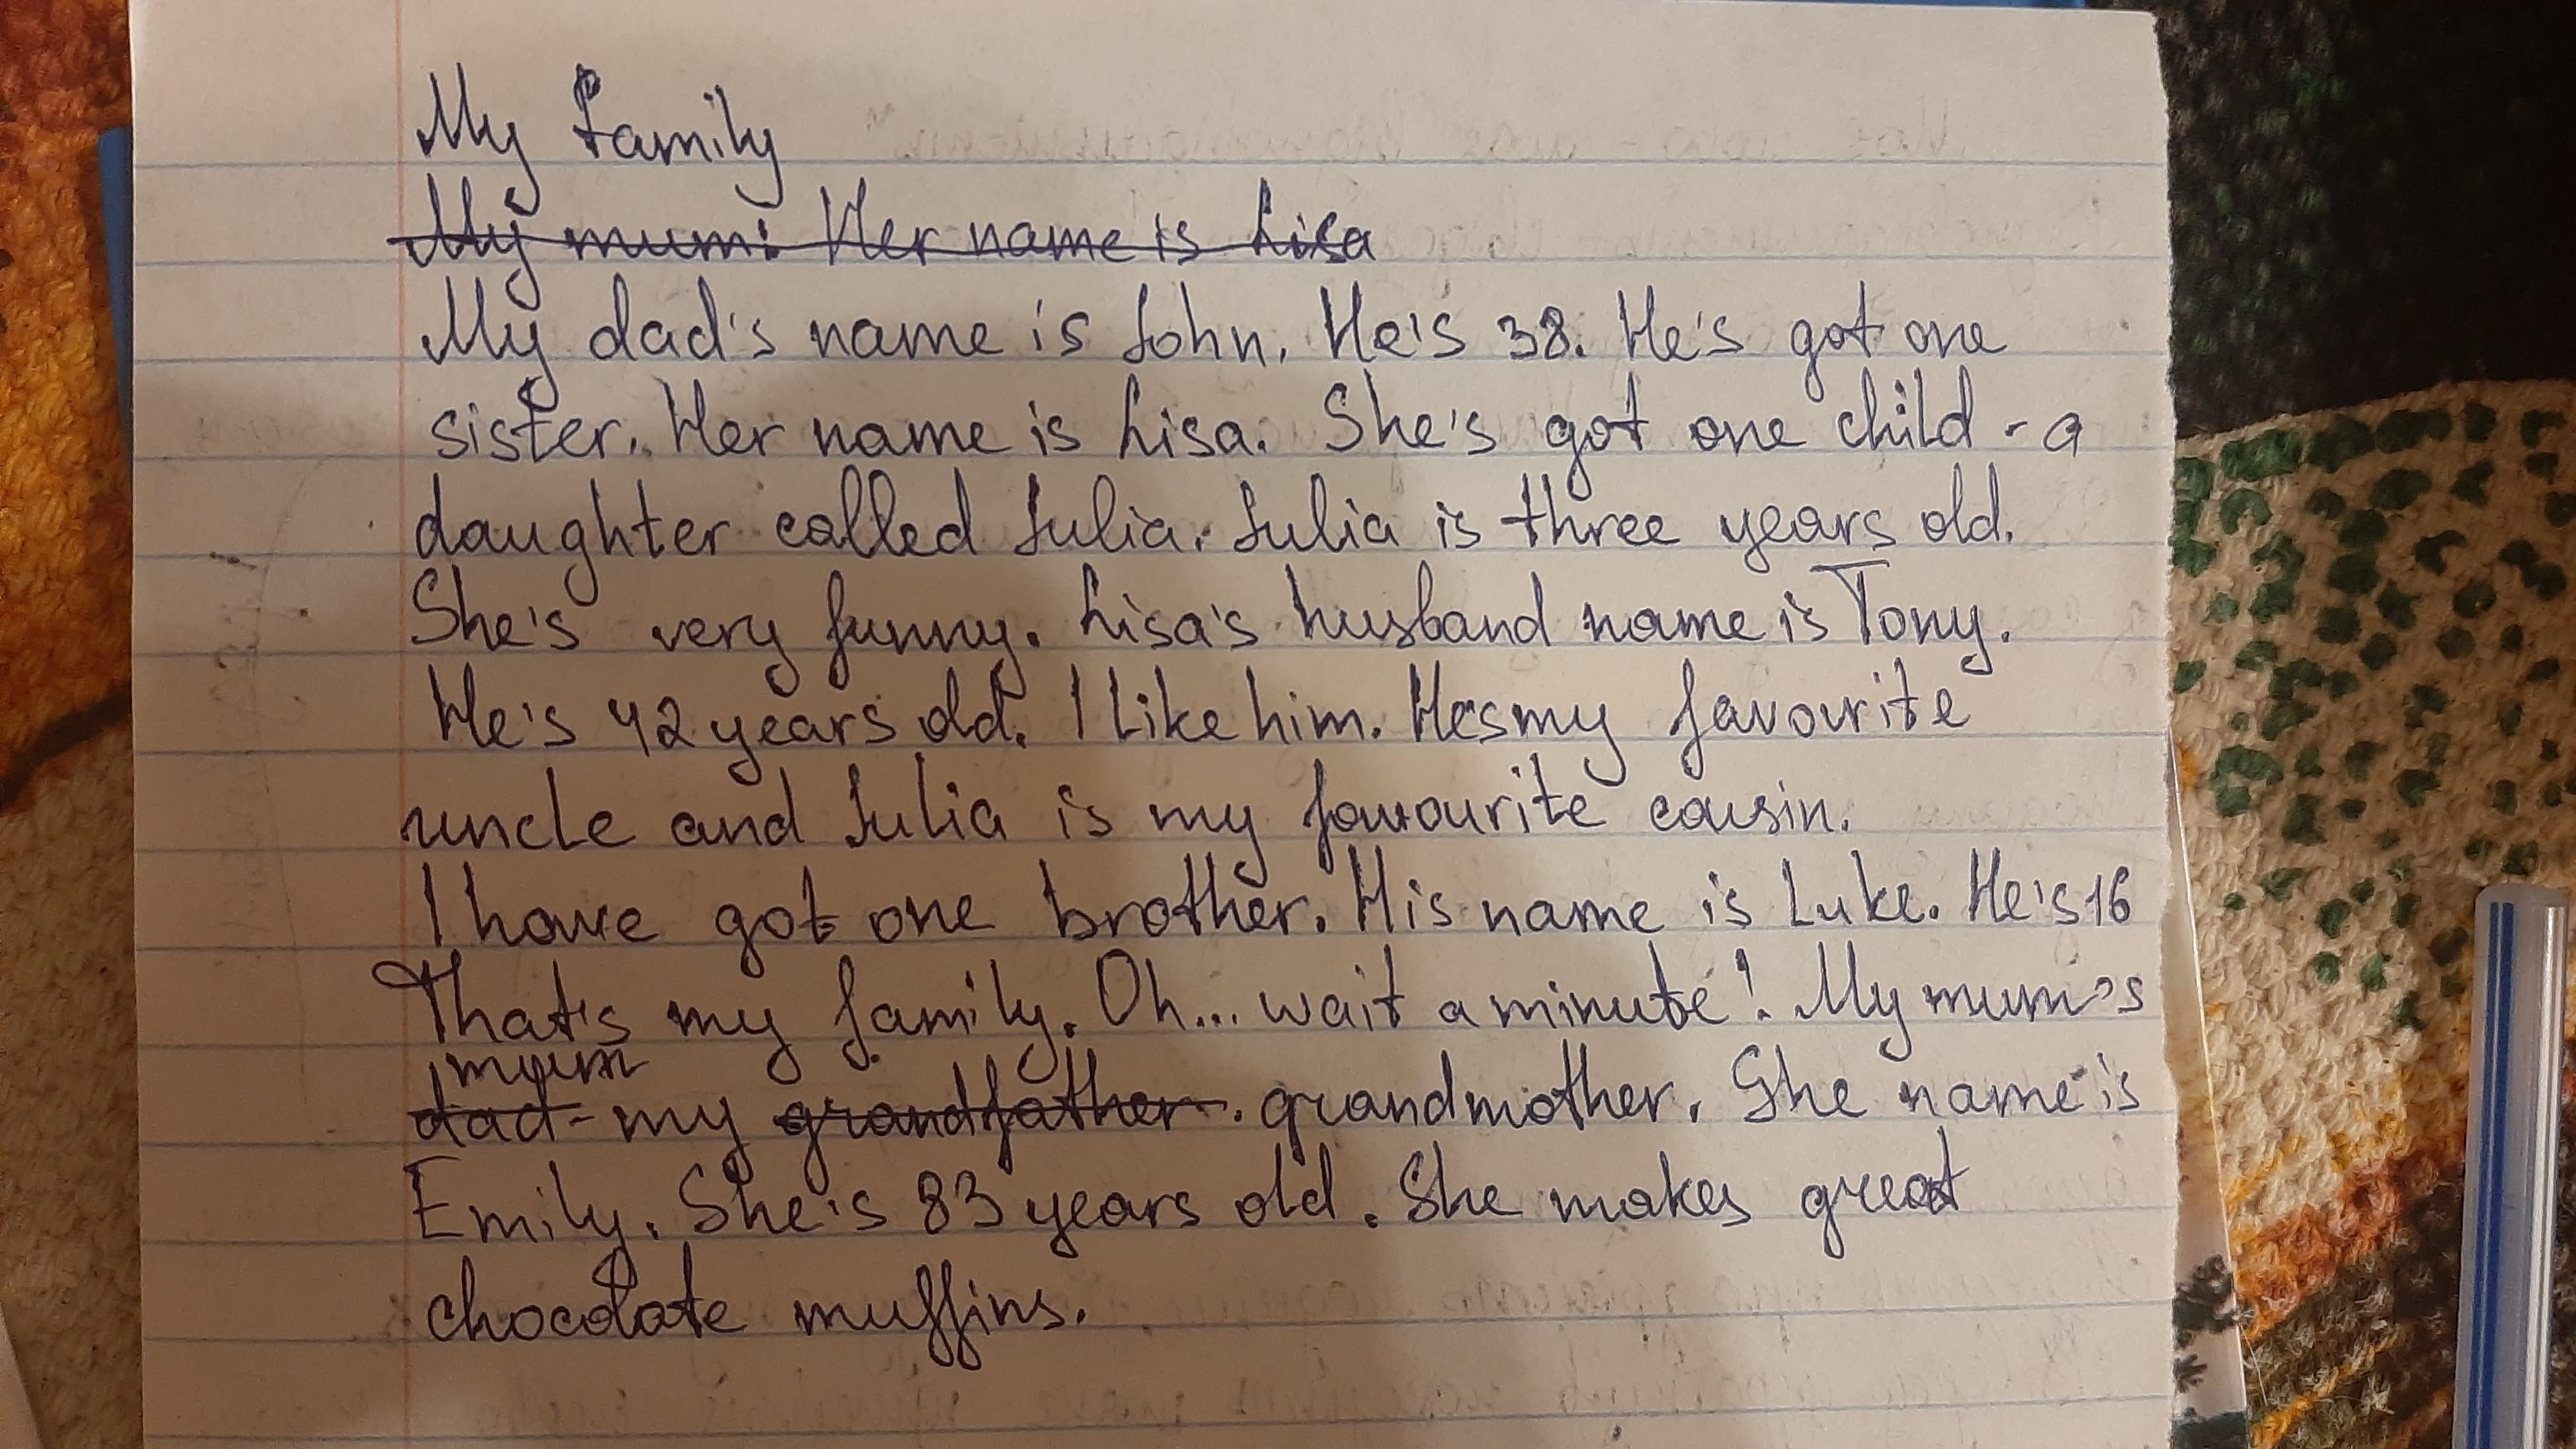 My Family
My mum: Her name is Lisa
My dad's name is John. He's 38. He's got one
sister. Her name is Lisa. She's got one child - a
daughter called Julia. Julia is three years old.
She's very funny. Lisa's husband name is Tony.
He's 42 years old. I like him. He's my favourite
uncle and Julia is my favourite cousin.
I have got one brother. His name is Luke. He's 16
That's my family. Oh... wait a minute! My mum's
mum
dad - my grandfather. grandmother. She name is
Emily. She's 83 years old. She makes great
chocolate muffins.